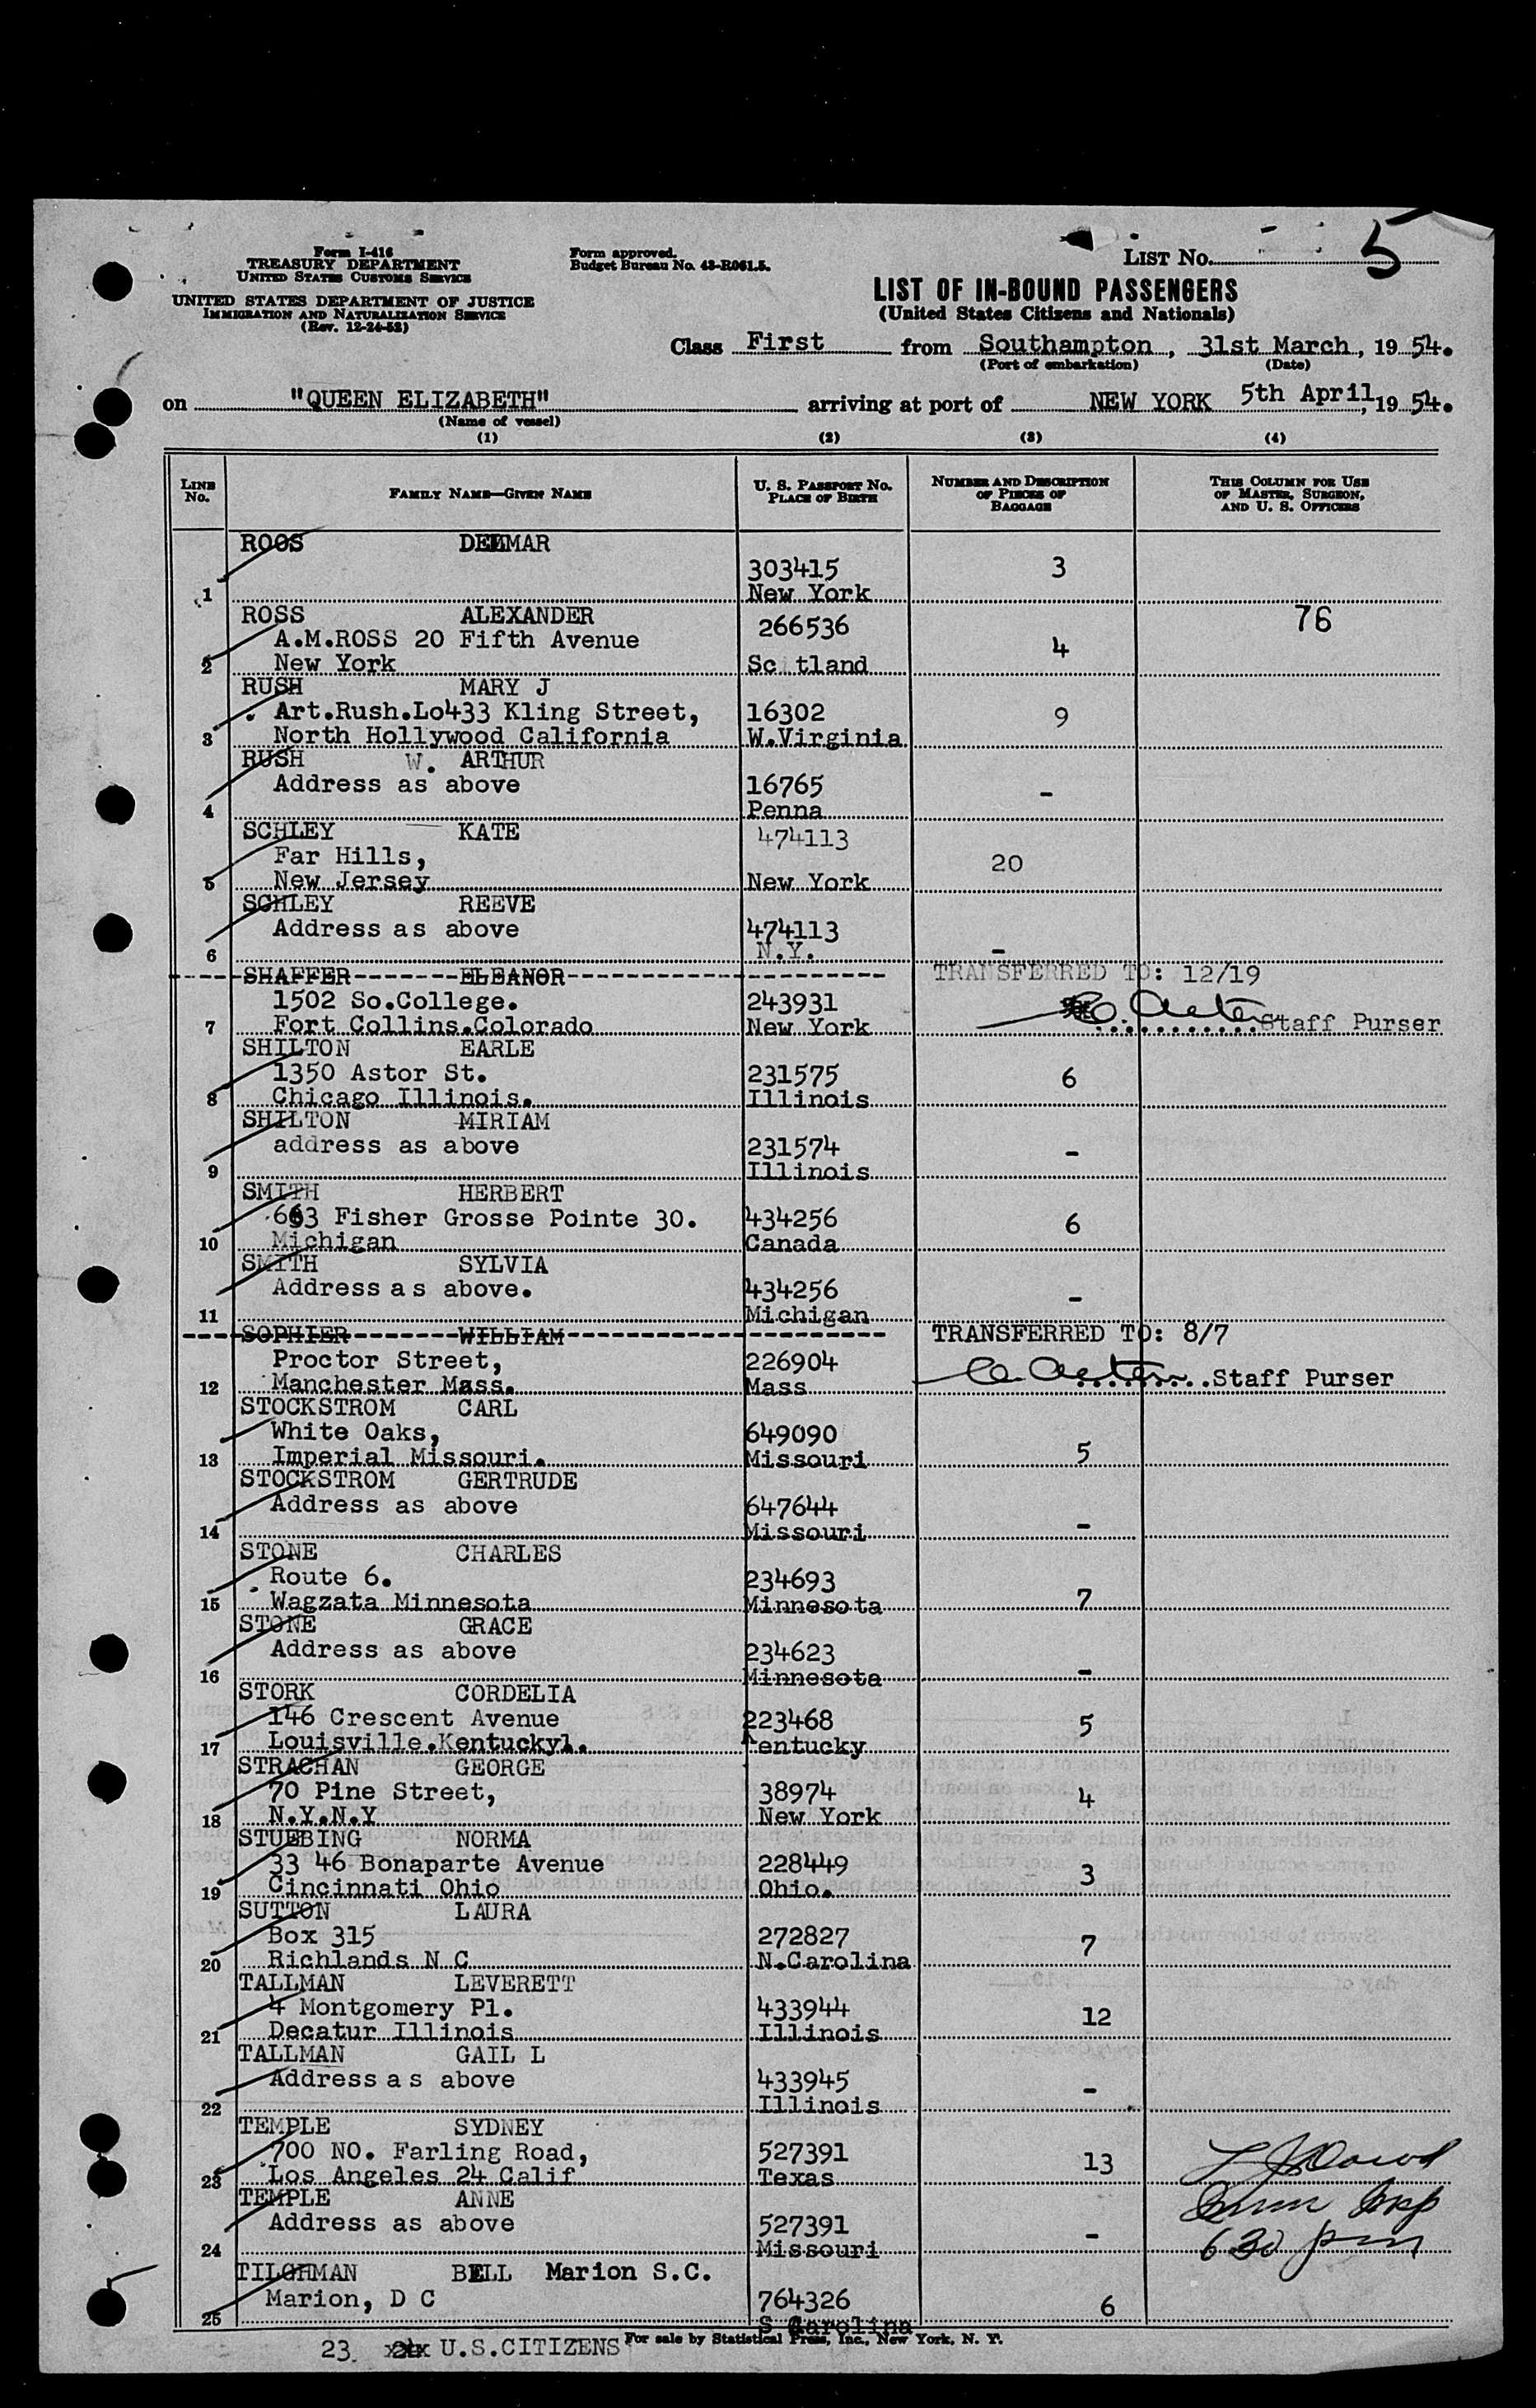 Form I-416
TREASURY DEPARTMENT
UNITED STATES CUSTOMS SERVICE
UNITED STATES DEPARTMENT OF JUSTICE
IMMIGRATION AND NATURALIZATION SERVICE
(Rev. 12-24-52)
Form approved.
Budget Bureau No. 43-R061.5.
LIST No. 5
LIST OF IN-BOUND PASSENGERS
(United States Citizens and Nationals)
Class First from Southampton, 31st March, 1954.
(Port of embarkation) (Date)
on "QUEEN ELIZABETH" arriving at port of NEW YORK 5th April, 1954.
(Name of vessel)
(1) (2) (3) (4)
LINE No. FAMILY NAME—GIVEN NAME U. S. PASSPORT No. PLACE OF BIRTH NUMBER AND DESCRIPTION OF PIECES OF BAGGAGE THIS COLUMN FOR USE OF MASTER, SURGEON, AND U. S. OFFICERS
ROOS
303415 3
1 New York
ROSS ALEXANDER 266536 76
A.M.ROSS 20 Fifth Avenue 4
2 New York Sc tland
RUSH MARY J
Art.Rush.Lo433 Kling Street, 16302 9
3 North Hollywood California W.Virginia
RUSH W. ARTHUR
Address as above 16765 -
4 Penna
SCHLEY KATE 474113
Far Hills, 20
5 New Jersey New York
SCHLEY REEVE
Address as above 474113
6 N.Y. -
SHAFFER ELEANOR TRANSFERRED TO: 12/19
1502 So.College. 243931
7 Fort Collins.Colorado New York Staff Purser
SHILTON EARLE
1350 Astor St. 231575 6
8 Chicago Illinois. Illinois
SHILTON MIRIAM
address as above 231574 -
9 Illinois
SMITH HERBERT
663 Fisher Grosse Pointe 30. 434256 6
10 Michigan Canada
SMITH SYLVIA
Address as above. 434256 -
11 Michigan
SOPHIER WILLIAM TRANSFERRED TO: 8/7
Proctor Street, 226904
12 Manchester Mass. Mass Staff Purser
STOCKSTROM CARL
White Oaks, 649090
13 Imperial Missouri. Missouri 5
STOCKSTROM GERTRUDE
Address as above 647644
14 Missouri -
STONE CHARLES
Route 6. 234693
15 Wagzata Minnesota Minnesota 7
STONE GRACE
Address as above 234623
16 Minnesota -
STORK CORDELIA
146 Crescent Avenue 223468 5
17 Louisville.Kentuckyl. Kentucky
STRACHAN GEORGE
70 Pine Street, 38974 4
18 N.Y.N.Y New York
STUEBING NORMA
33 46 Bonaparte Avenue 228449 3
19 Cincinnati Ohio Ohio.
SUTTON LAURA
Box 315 272827 7
20 Richlands N C N.Carolina
TALLMAN LEVERETT
4 Montgomery Pl. 433944 12
21 Decatur Illinois Illinois
TALLMAN GAIL L
Address as above 433945 -
22 Illinois
TEMPLE SYDNEY
700 NO. Farling Road, 527391 13
23 Los Angeles 24 Calif Texas
TEMPLE ANNE
Address as above 527391 -
24 Missouri 630 pm
TILGHMAN BELL Marion S.C.
Marion, D C 764326 6
25 S Carolina
23 U.S.CITIZENS For sale by Statistical Press, Inc., New York, N. Y.